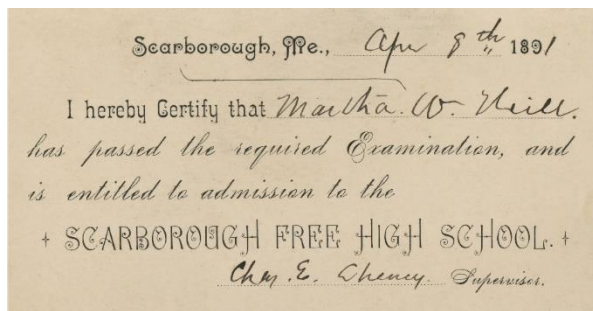 Scarborough, Me., Apr 8th 1891
I hereby Certify that Martha. W.
has passed the required Examination, and
is entitled to admission to the
SCARBOROUGH FREE HIGH SCHOOL.
Chas. E. Cheney. Supervisor.